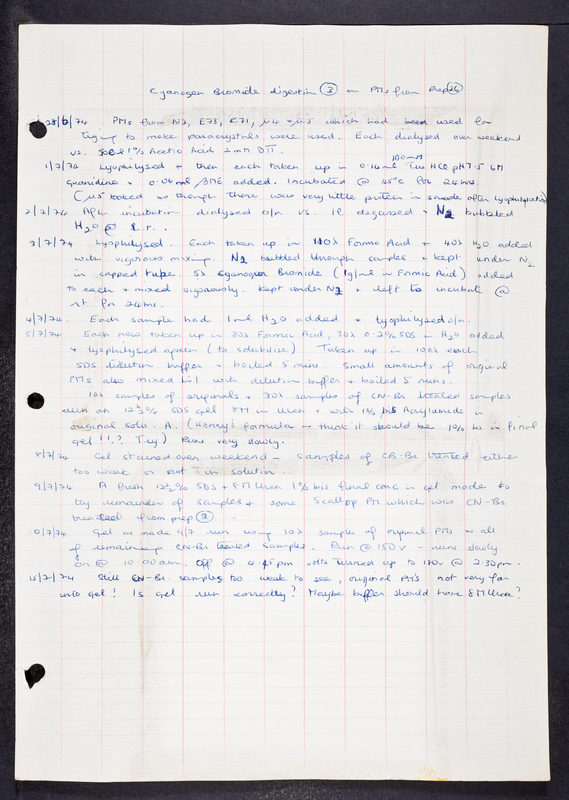 Cyanogen Bromide digestion (3) on PMs from Prep (24)
28/6/74. PMs from N2, E73, E71, μ4 + μ5 which had been used for
trying to make paracrystals were used. Each dialysed over weekend
vs. 1% Acetic Acid 2mM DTT.
1/7/74 Lyophilysed + then each taken up in 0.14ml 100mM Tris HCl pH 7.5 6M
guanidine + 0.06ml βME added. Incubated @ 45°C for 24hrs.
(μ5 looked as though there was very little protein in sample after lyophilysation)
2/7/74 After incubation dialysed o/n vs. 1l degassed + N2 bubbled
H2O @ r.t..
3/7/74 Lyophilysed. Each taken up in 110λ Formic Acid + 40λ H2O added
with vigorous mixing. N2 bubbled through samples + kept under N2
in capped tube. 5λ Cyanogen Bromide (1g/ml in Formic Acid) added
to each + mixed vigorously. Kept under N2 + left to incubate @
rt for 24hrs.
4/7/74. Each sample had 1ml H2O added + lyophilysed o/n.
5/7/74. Each now taken up in 30λ Formic Acid, 30λ 0.2% SDS in H2O added
+ lyophilysed again (to solubilise) Taken up in 100λ each
SDS dilution buffer + boiled 5 mins. Small amounts of original
PMs also mixed 1:1 with dilution buffer + boiled 5 mins.
10λ samples of originals + 30λ samples of CN-Br treated samples
run on 12½% SDS gel 8M in Urea + with 1% bis Acrylamide in
original soln. A. (Henry's formula - think it should be 1% bis in final
gel!!.? Try) Runs very slowly.
8/7/74 Gel stained over weekend - samples of CB-Br treated either
too weak or not in solution
9/7/74 A fresh 12½% SDS + 8M Urea 1% bis final conc in gel made to
try remainder of samples + some Scallop PM which was CN-Br
treated from prep (2).
10/7/74 Gel as made 9/7 run using 10λ samples of original PMs + all
of remaining CN-Br treated samples. Run @ 150v - runs slowly
on @ 10.00am. Off @ 4.15pm volts turned up to 180v @ 2.30pm.
15/7/74 Still CN-Br samples too weak to see, original PMs not very far
into gel! Is gel run correctly? Maybe buffer should have 8M Urea?